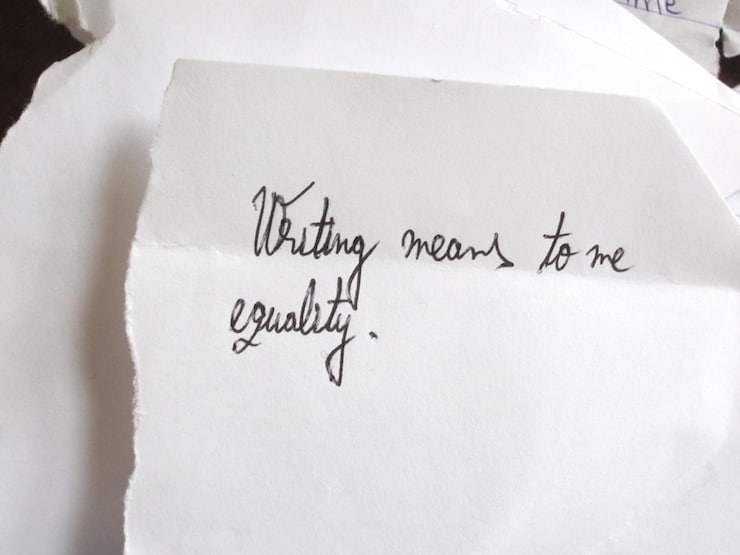 Writing means to me
equality.